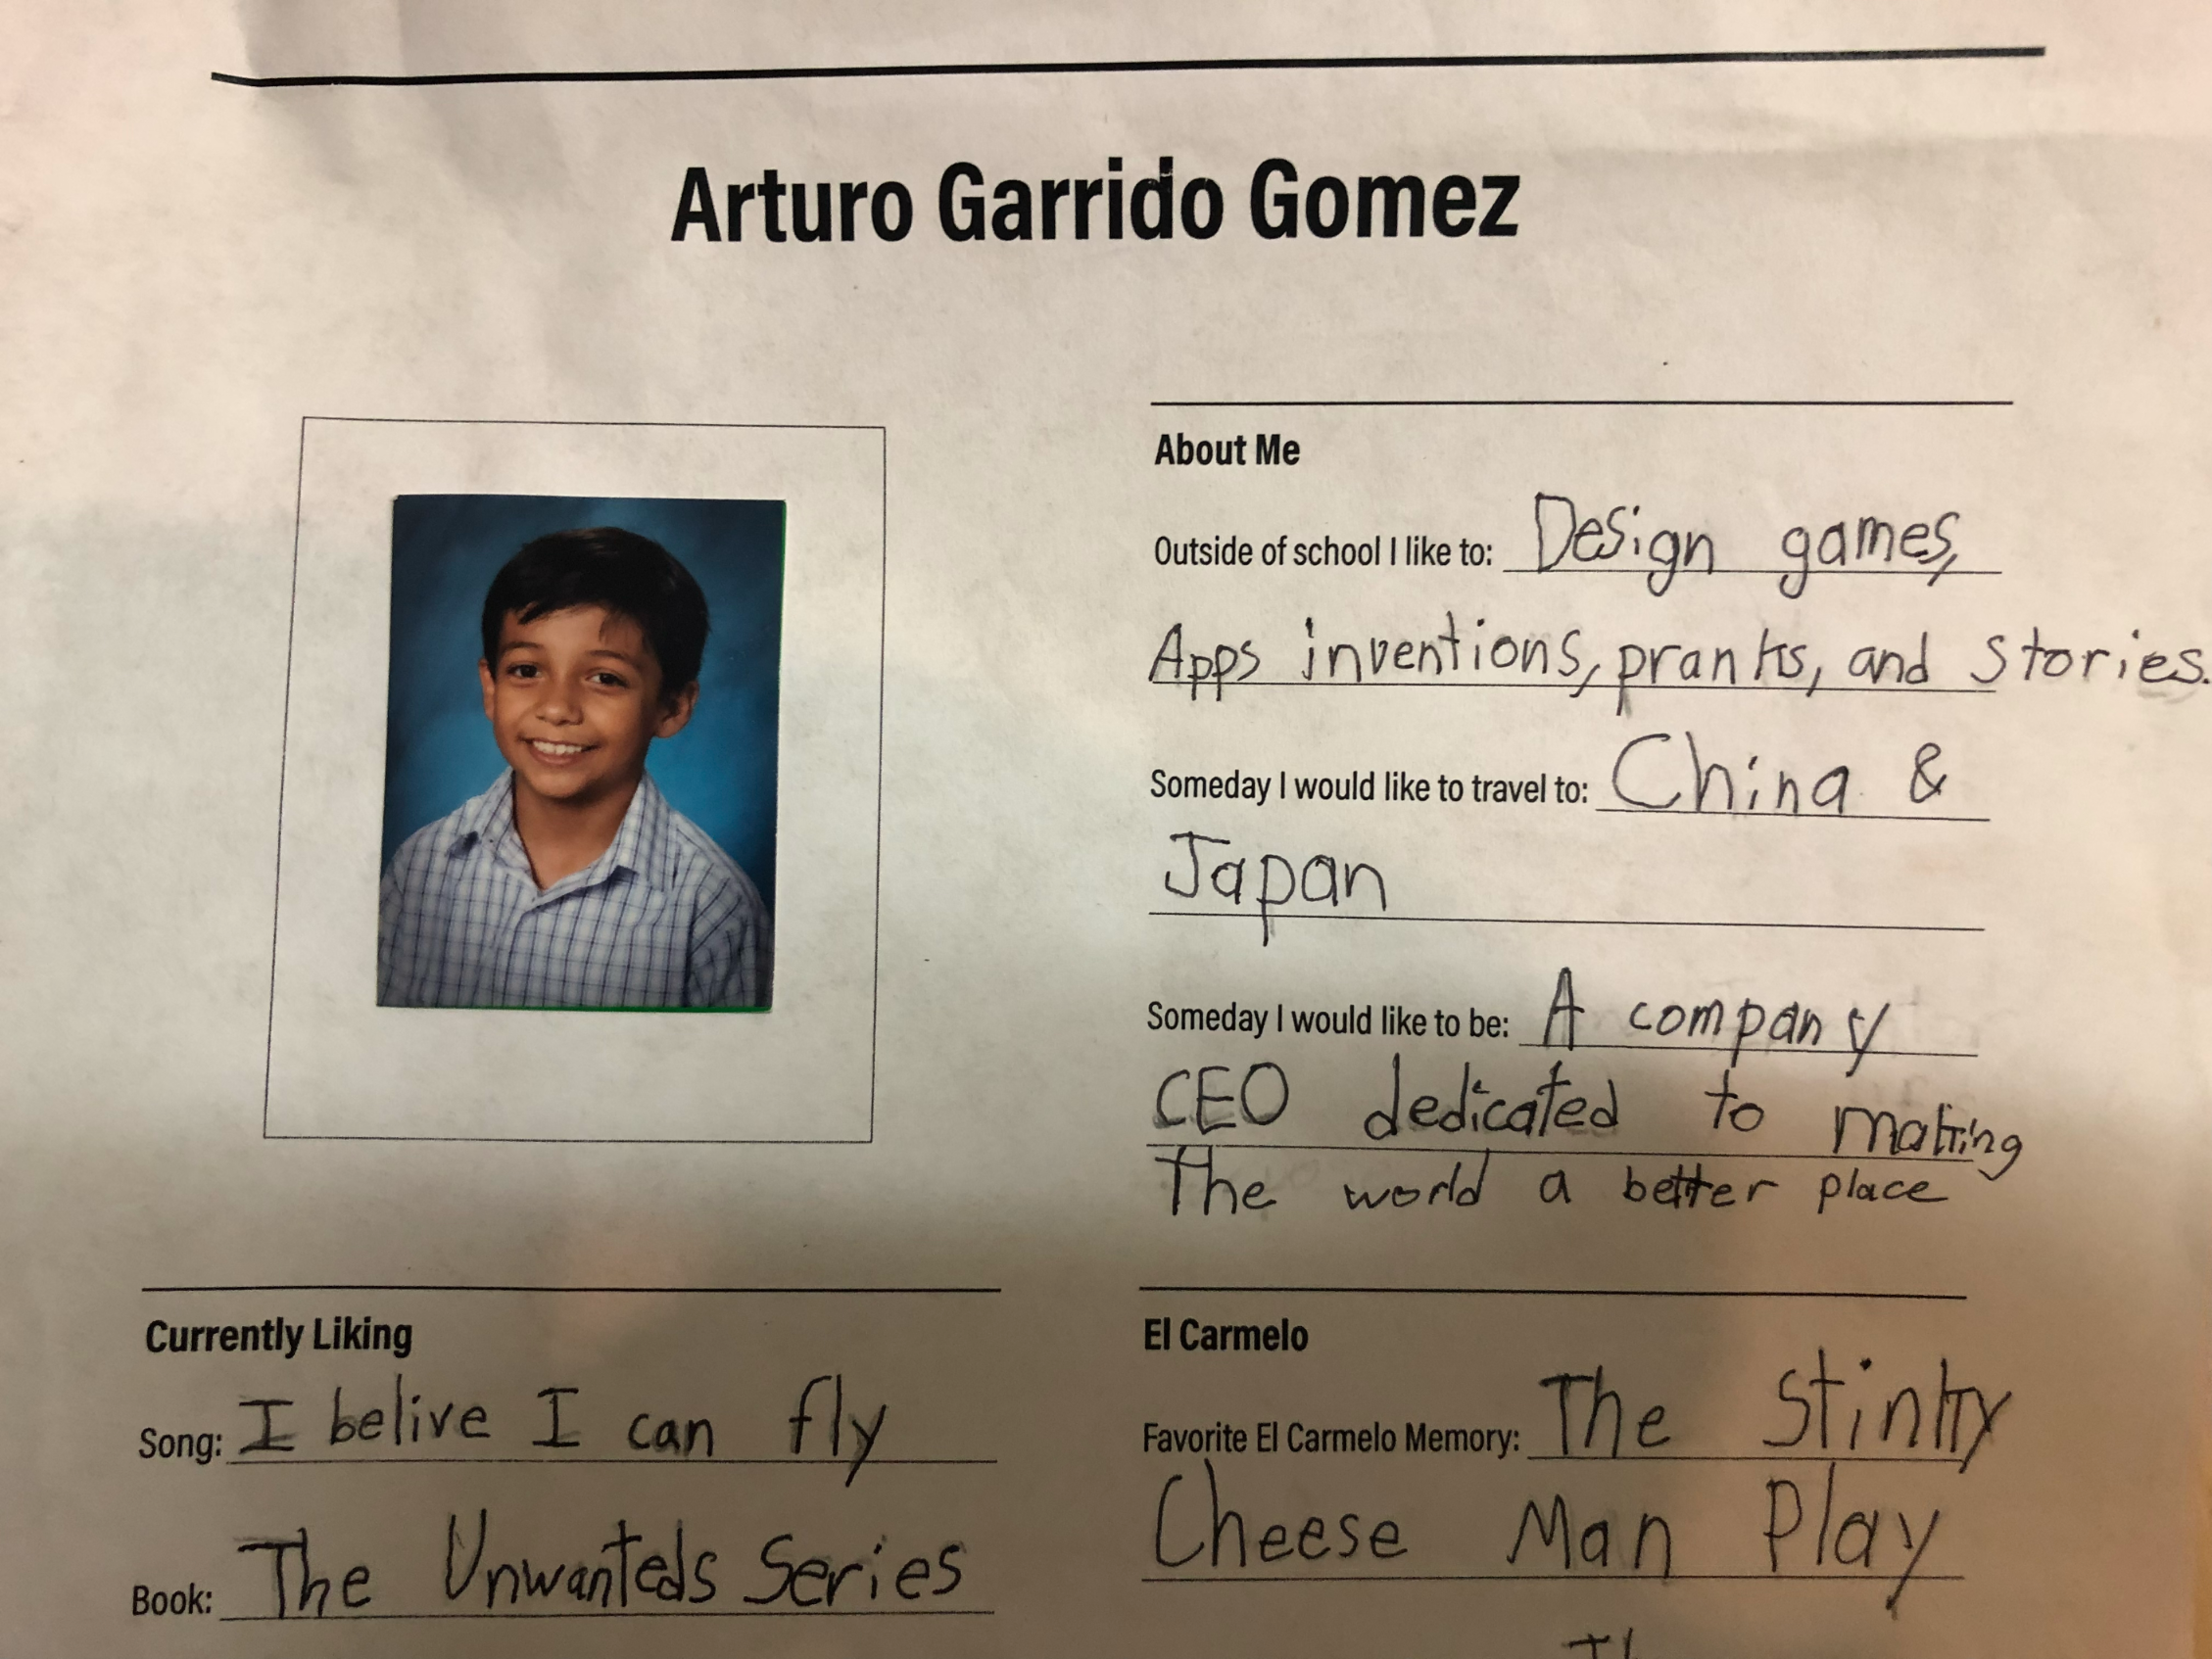 Arturo Garrido Gomez
About Me
Outside of school I like to: Design games,
Apps inventions, pranks, and stories.
Someday I would like to travel to: China &
Japan
Someday I would like to be: A company
CEO dedicated to making
The world a better place
Currently Liking
Song: I belive I can fly
Book: The Unwanteds Series
El Carmelo
Favorite El Carmelo Memory: The Stinky
Cheese Man Play